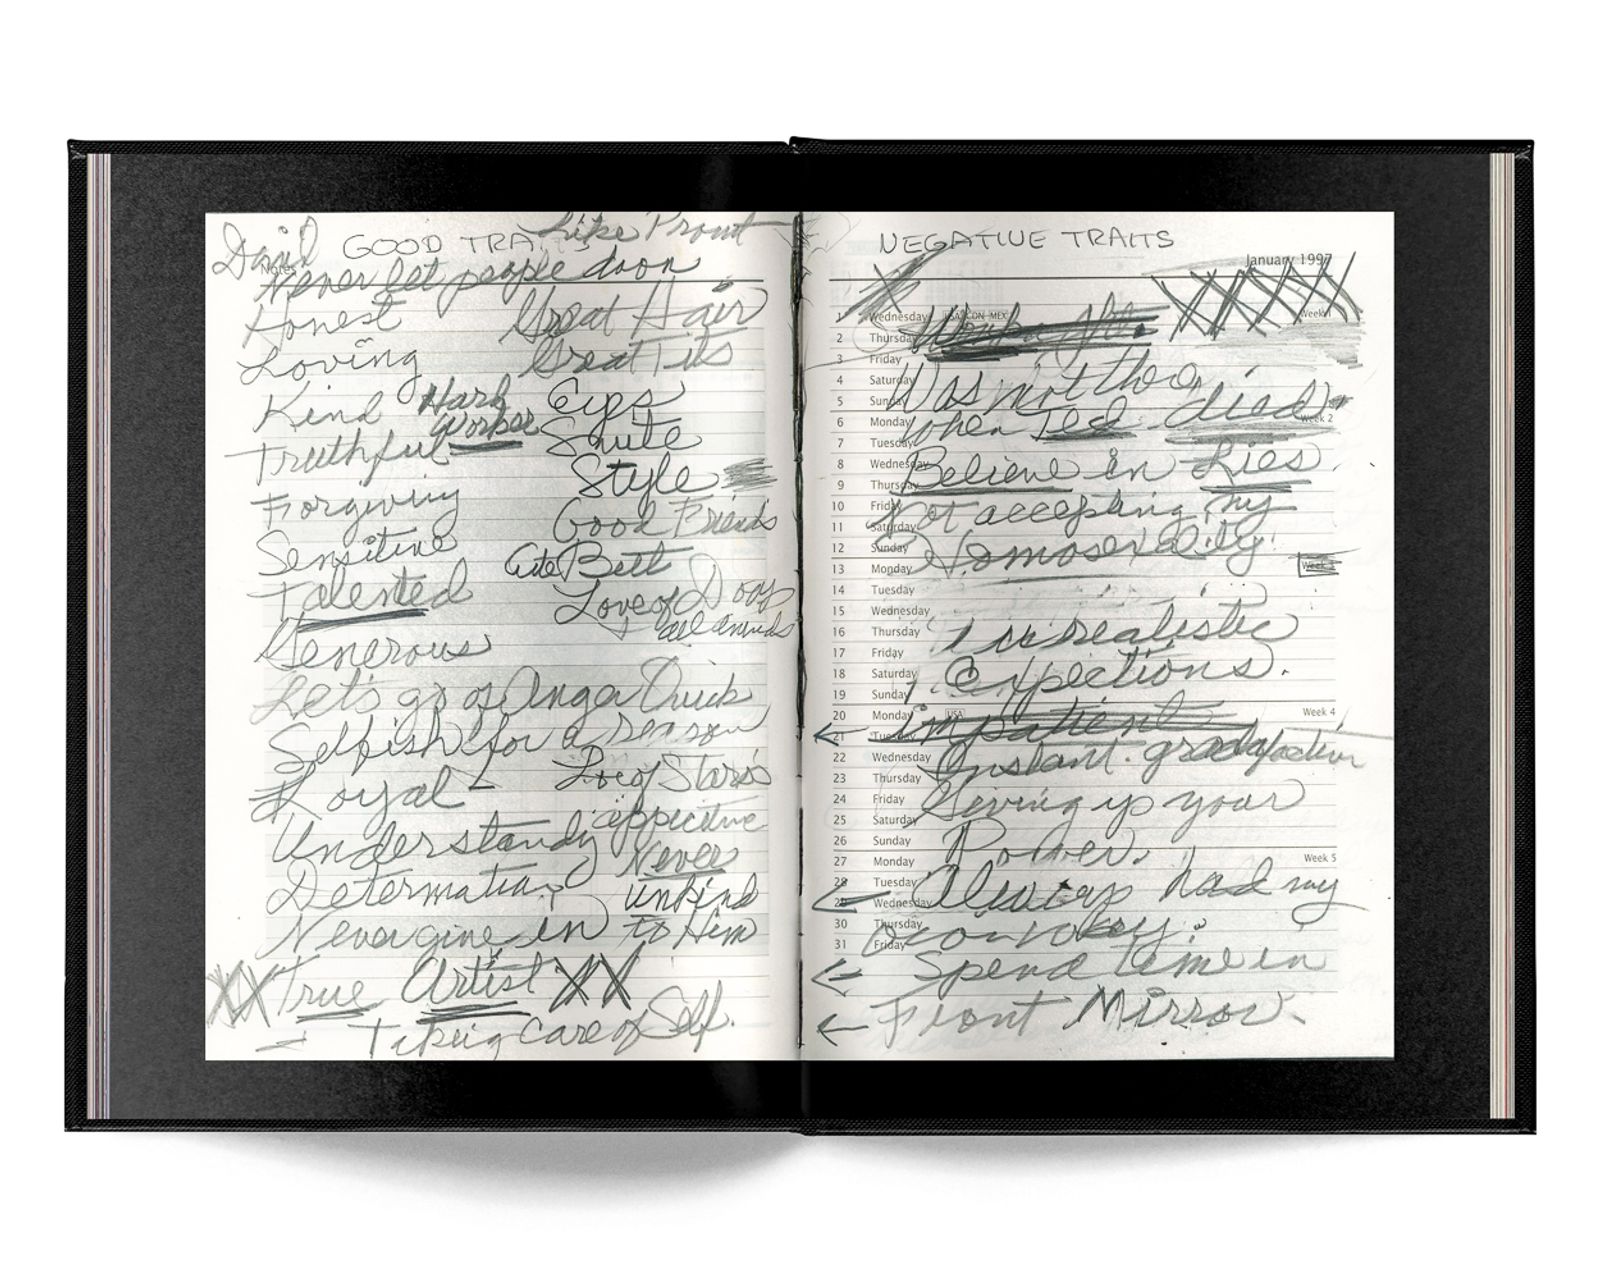 David
GOOD TRAITS
Like Prout
Never let people doon
Honest
Great Hair
Loving
Great Tits
Kind
Hard
Worker
Eips
Truthful
Snute
Style
Forgiving
Good Friends
Sensitive
Cute Butt
Talented
Love of Dogs
all animals
Generous
Let's go of Anger Quick
Selfish for a reason
Loyal
Love of Stars
Understandy
Determation
Never
unkind
to Him
Never give in
XX True Artist XX
Taking care of Self.
NEGATIVE TRAITS
January 1997
1 Wednesday USA CON MEX Week
2 Thursday
3 Friday
4 Saturday
5 Sunday
6 Monday Week 2
7 Tuesday
8 Wednesday
9 Thursday
10 Friday
11 Saturday
12 Sunday
13 Monday Week 3
14 Tuesday
15 Wednesday
16 Thursday
17 Friday
18 Saturday
19 Sunday
20 Monday USA Week 4
21 Tuesday
22 Wednesday
23 Thursday
24 Friday
25 Saturday
26 Sunday
27 Monday Week 5
28 Tuesday
29 Wednesday
30 Thursday
31 Friday
Was not there
when Ted died
Believe in Lies.
Not accepting my
Homosexality
realistic
expections.
impatient
Instant
Giving up your
Power.
Always had my
Spend time in
Front Mirror.